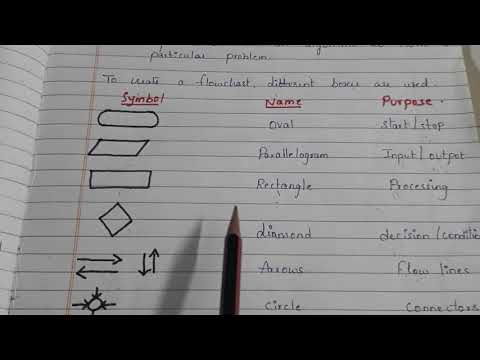 particular problem.
To create a flowchart, different boxes are used.
Symbol Name Purpose.
Oval start/stop
Parallelogram Input/output
Rectangle Processing
diamond decision/condition
Arrows Flow lines
Circle Connectors